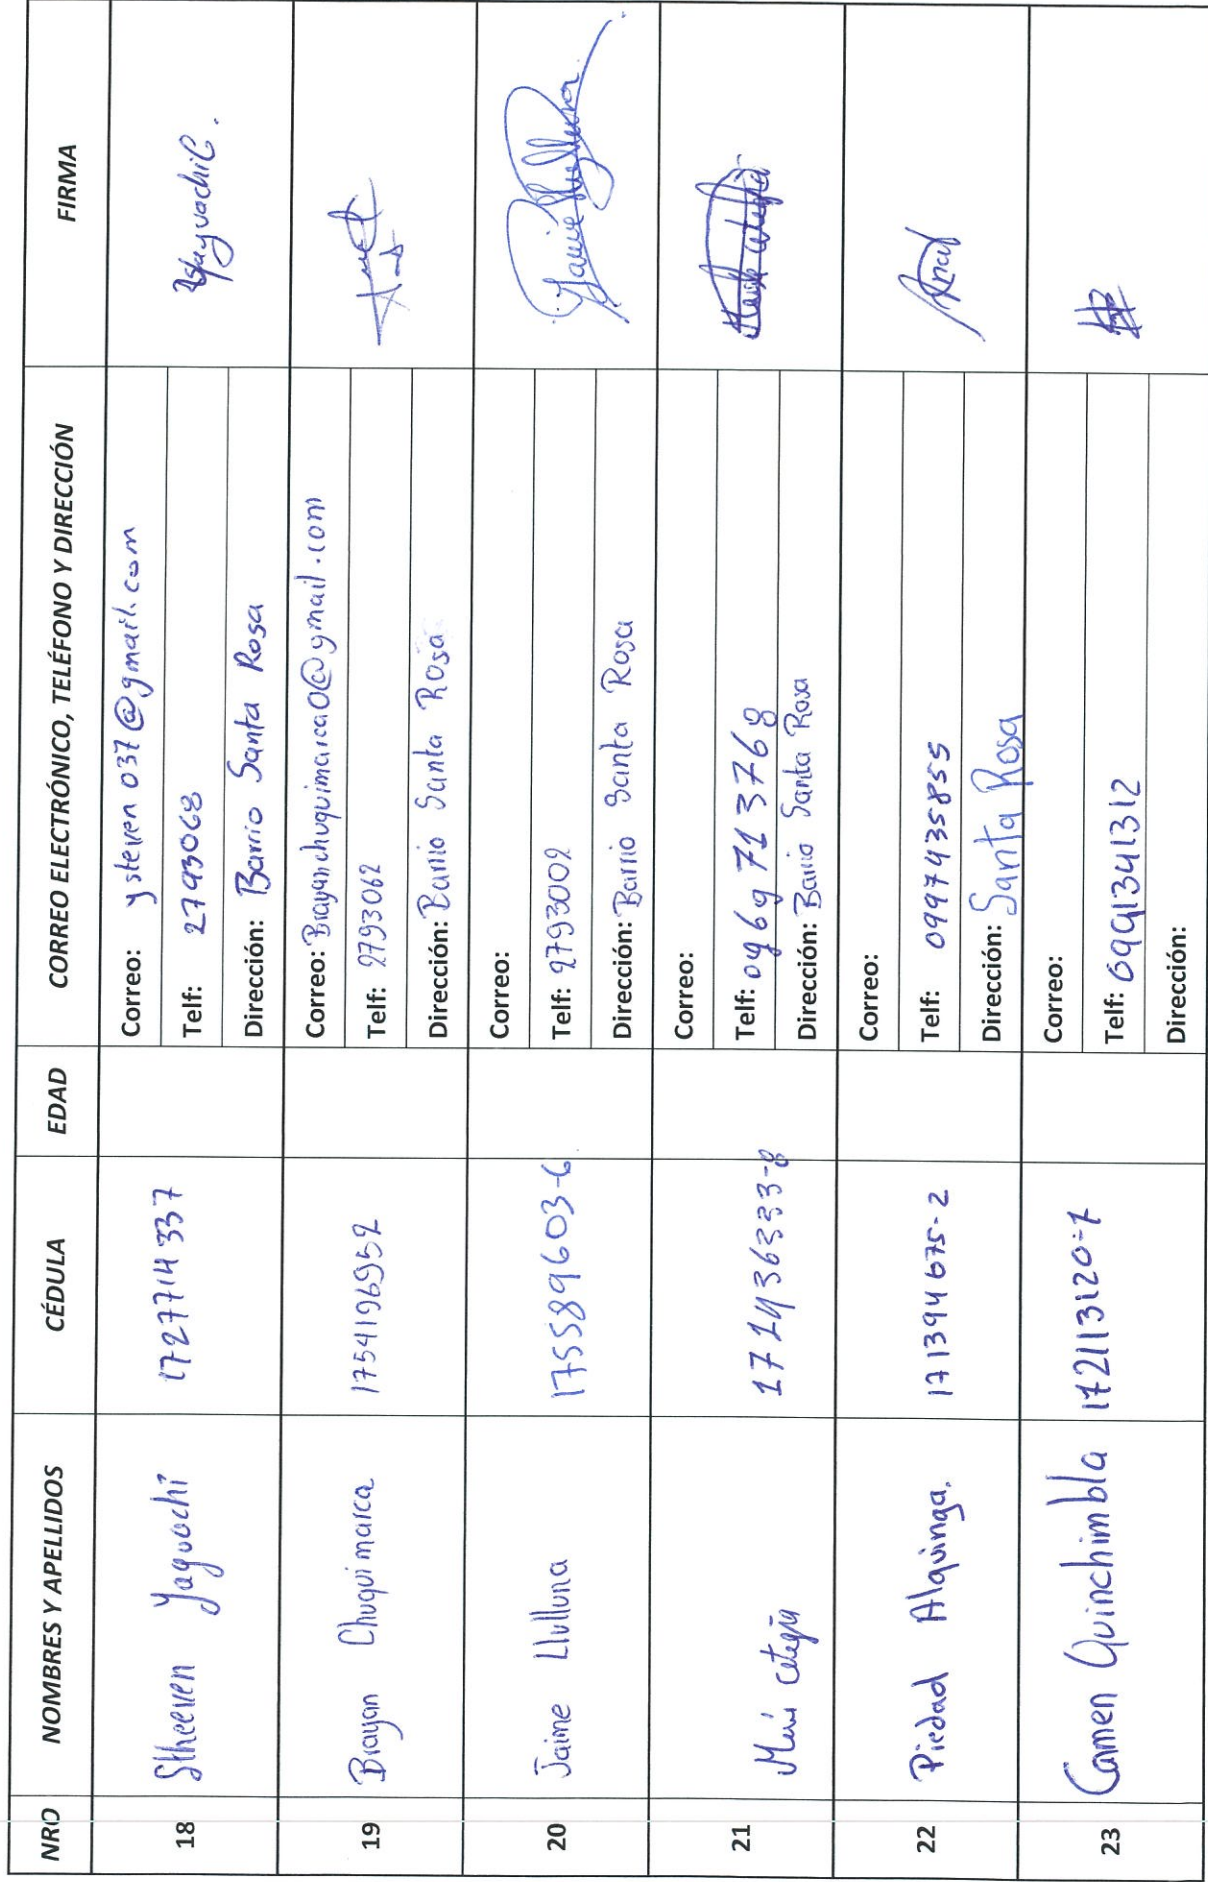 NRO NOMBRES Y APELLIDOS CÉDULA EDAD CORREO ELECTRÓNICO, TELÉFONO Y DIRECCIÓN FIRMA
18 Stheeven Yaguachi 1727714337
Correo: ysteven037@gmail.com
Telf: 2793068
Dirección: Barrio Santa Rosa
19 Brayan Chuquimarca 1754196952
Correo: Brayanchuquimarca0@gmail.com
Telf: 2793062
Dirección: Barrio Santa Rosa
20 Jaime Llulluna 175589603-6
Correo:
Telf: 2793002
Dirección: Barrio Santa Rosa
21 171436333-8
Correo:
Telf: 0969713768
Dirección: Barrio Santa Rosa
22 Piedad Alquinga. 171394675-2
Correo:
Telf: 0997435855
Dirección: Santa Rosa
23 Carmen Quinchimbla 172113120-7
Correo:
Telf: 0991341312
Dirección: